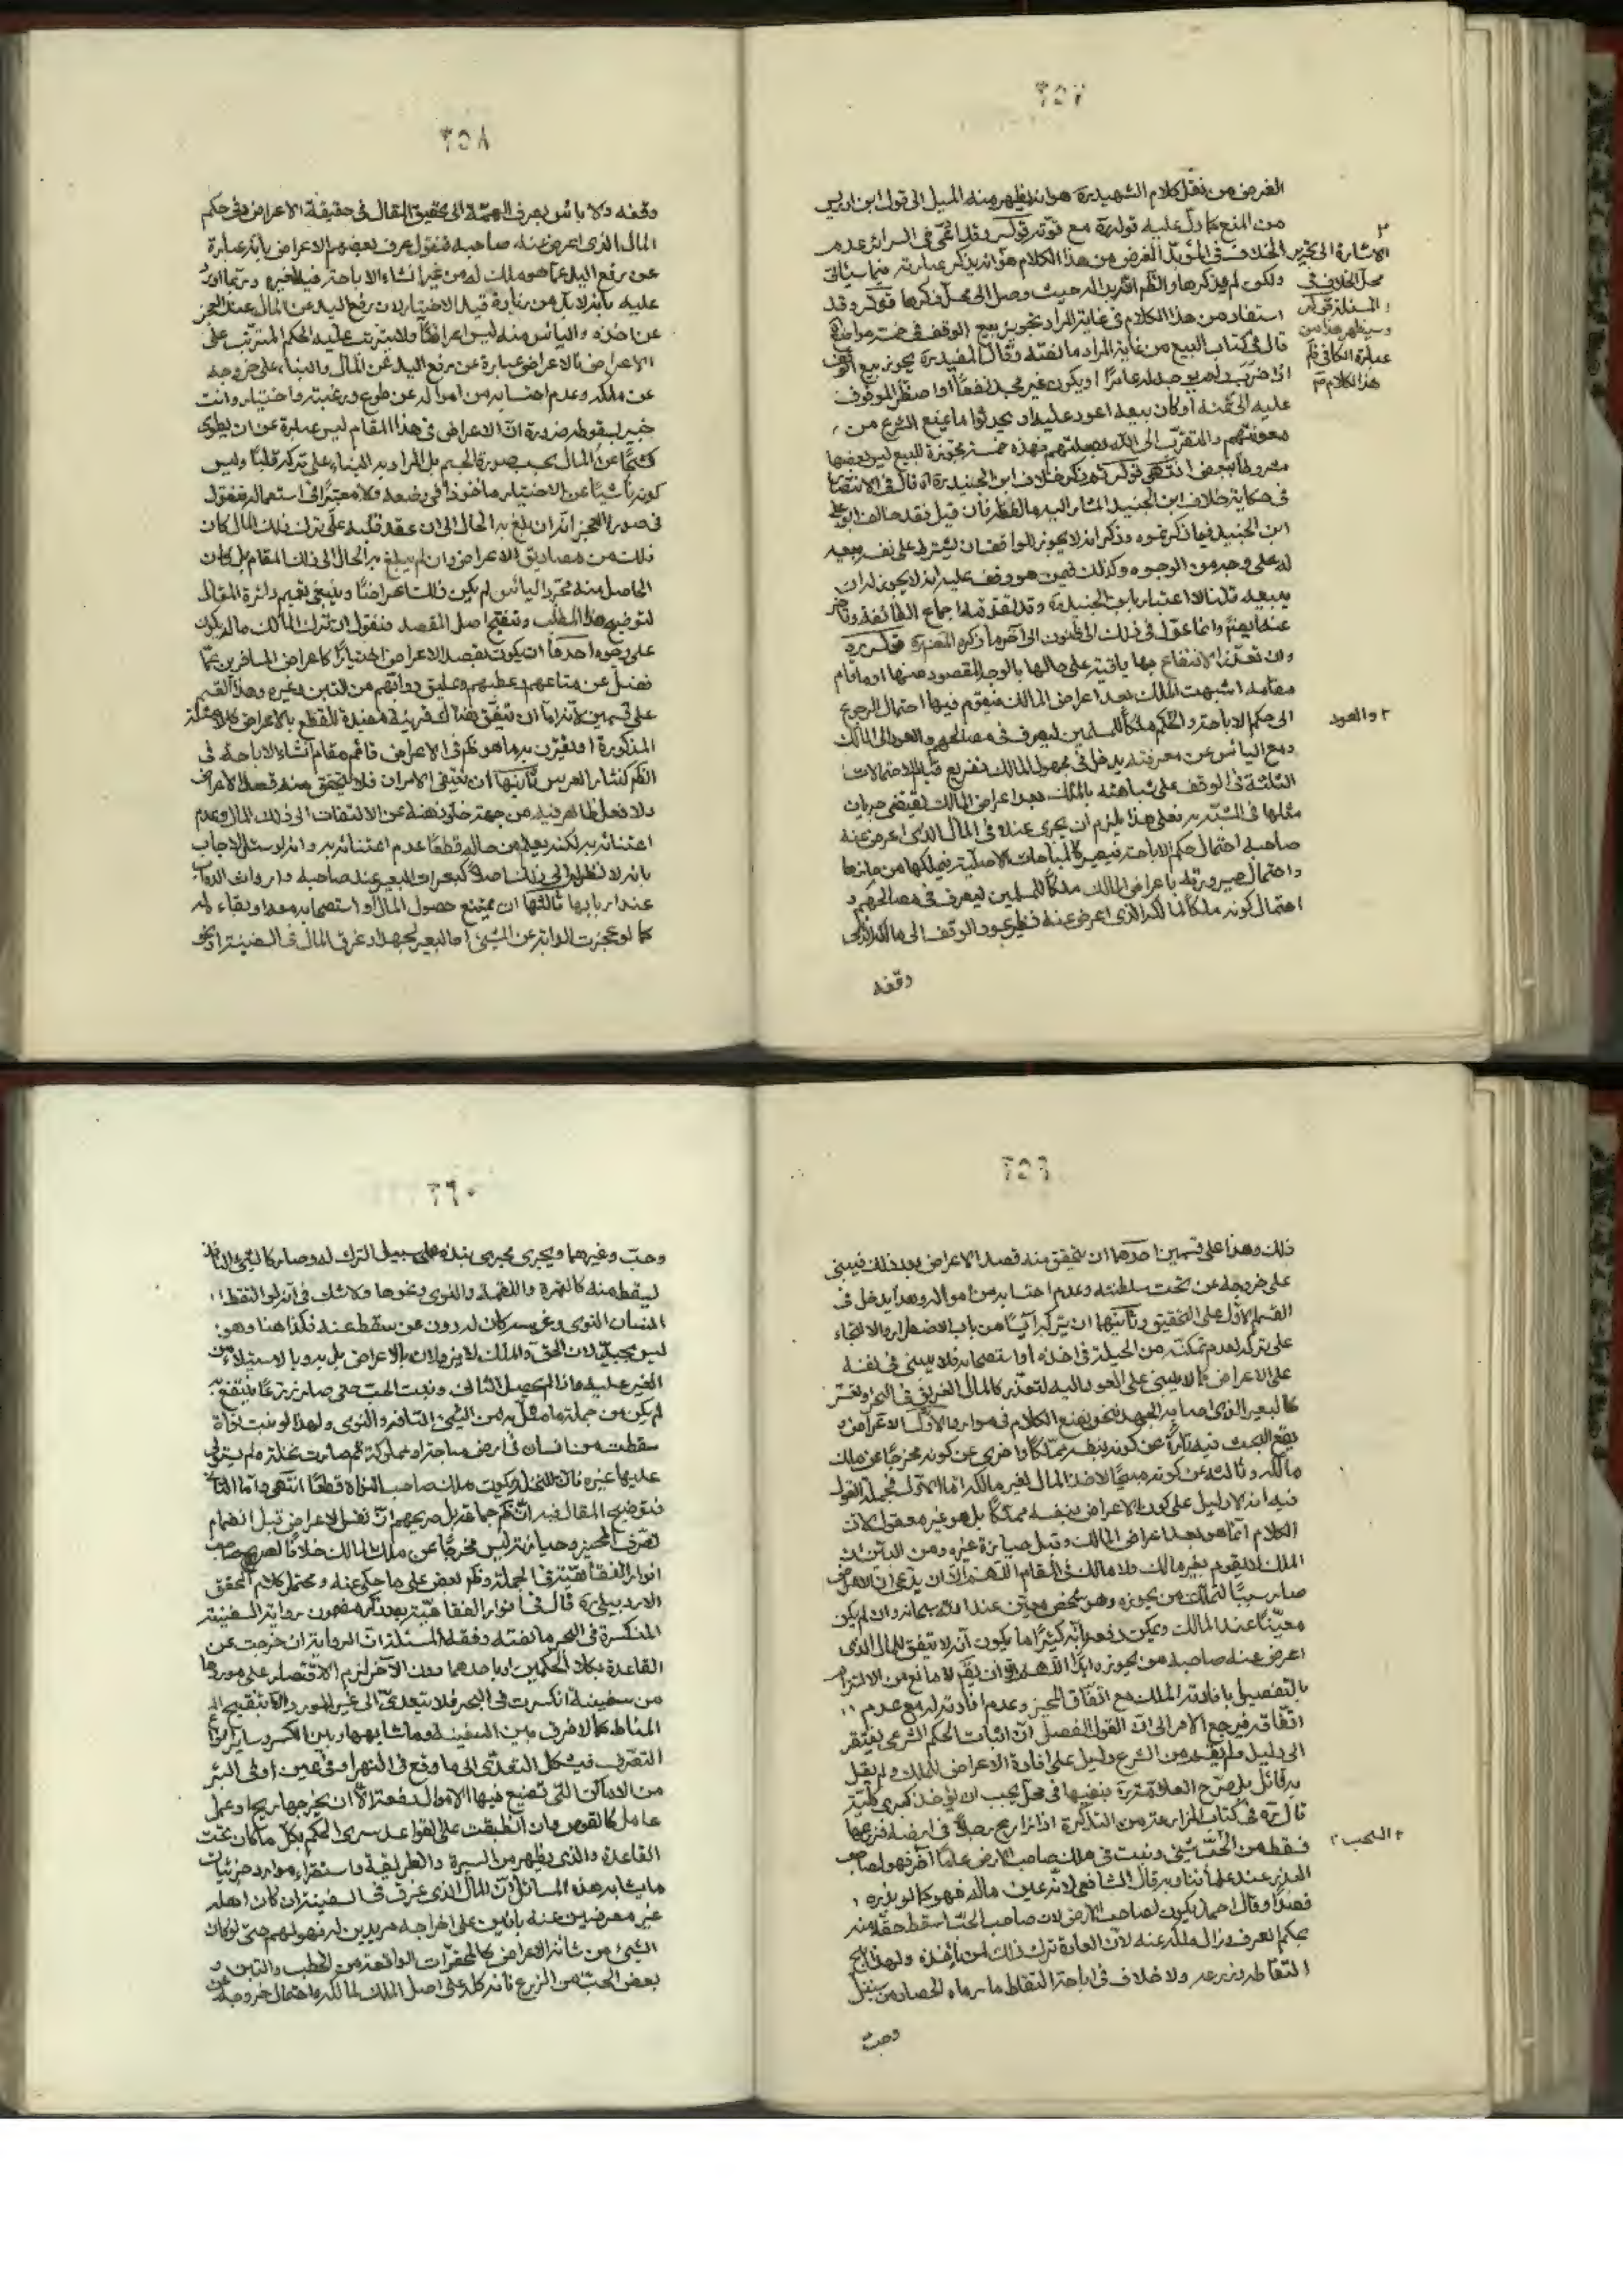 ٢٥٧
الغرض من نقل كلام الشهيد ره هو انه يظهر منه الميل الى قول ابن ادريس
من المنع كما دل عليه قوله ره مع قوته قوله وقد ادعى في السرائر عدم
الخلاف في المؤبد الغرض من هذا الكلام هو انه يذكر عبارته فيما سيأتي
ولكون لم يذكرها
استفاد من هذا الكلام في غاية المراد تجويز بيع الوقف في خمسة مواضع
قال في كتاب البيع من غاية المراد ما نصّه وقال المفيد ره يجوز بيع الوقف
اذا خرب ولم يوجد له عامرا او يكون غير مجد نفعا او اضطر الموقوف
عليه الى ثمنه او كان بيعه اعود عليه او يحدثوا ما يمنع الشرع من
معونتهم والتقرب الى الله بصلتهم فهذه خمسة مجوّزة للبيع ليس بعضها
مشروطا ببعض انتهى قوله ثم ذكر خلاف ابن الجنيد ره قال في الانتصار
في حكاية خلاف ابن الجنيد المشار اليه ما لفظه فان قيل فقد خالف ابو علي
ابن الجنيد فيما ذكرتموه وذكر انه لا يجوز للواقف ان يشترط على نفسه بيعه
له على وجه من الوجوه وكذلك فيمن هو وقف عليه انه لا يجوز له ان
يبيعه قلنا لا اعتبار بابن الجنيد ره وقد تقدمه اجماع الطائفة وتأخر
عنه ايضا وانما عوّل في ذلك الى ظنون الى آخر ما ذكره المصنّف ره قوله ره
وان تعذّر الانتفاع بها باقية على حالها بالوجه المقصود منها او ما قام
مقامه اشبهت الملك بعد اعراض المالك فيقوم فيها احتمال الرجوع
الى حكم الاباحة والحكم ملكا للمسلمين ليصرف في مصالحهم والعود الى المالك
ومع اليأس عن معرفته يدخل في مجهول المالك تفريع قيام الاحتمالات
الثلثة في الوقف على شباهته بالملك بعد اعراض المالك يقتضي جريان
مثلها في المشبّه به فعلى هذا يلزم ان يجري عنده في المال الذي اعرض عنه
صاحبه احتمال حكم الاباحة فيصير كالمباحات الاصلية فيملكها من حازها
واحتمال صيرورته باعراض المالك ملكا للمسلمين ليصرف في مصالحهم و
احتمال كونه ملكا لمالكه الذي اعرض عنه فنظير عود الوقف الى مالكه الذي
وقفه
٢
الاشارة الى تحرير
محل الخلاف في
المسئلة قوله
وسيظهر هذا من
عبارة الكافي
هذا الكلام
٢ والعود
٢٥٨
وقفه ولا بأس بصرف الهمّة الى تحقيق المقال في حقيقة الاعراض وفي حكم
المال الذي اعرض عنه صاحبه فنقول عرف بعضهم الاعراض بانه عبارة
عن رفع اليد عما هو ملك له من غير انشاء الاباحة فيه لغيره وربما اورد
عليه بانه لا بدّ من زيادة قيد الاختيار لان رفع اليد عن المال عند العجز
عن اخذه واليأس منه ليس اعراضا ولا يترتب عليه الحكم المترتب على
الاعراض فالاعراض عبارة عن رفع اليد عن المال والبناء على خروجه
عن ملكه وعدم احتسابه من امواله عن طوع ورغبة واختيار وانت
خبير بسقوطه ضرورة انّ الاعراض في هذا المقام ليس عبارة عن ان يطوى
كشحا عن المال بحسب صورة الجسم بل المراد به البناء على تركه قلبا وليس
كونه ناشيا عن الاختيار مأخوذا في وضعه ولا معتبرا في استعماله فنقول
في صورة العجز انه ان بلغ به الحال الى ان عقد قلبه على ترك ذلك المال كان
ذلك من مصاديق الاعراض وان لم يبلغ به الحال الى ذلك المقام بل كان
الحاصل منه مجرّد اليأس لم يكن ذلك اعراضا وينبغي تعميم دائرة المقال
لتوضيح هذا المطلب وتنقيح اصل المقصد فنقول ان ترك المالك ماله يكون
على وجوه احدها ان يكون بقصد الاعراض اختيارا كاعراض المسافرين عمّا
فضل عن متاعهم وعطبهم وعليق دوابّهم من التبن وغيره وهذا القسم
على قسمين لانه امّا ان يتفق هناك قرينة مفيدة للقطع بالاعراض كالامثلة
المذكورة او يقترن به ما هو ظاهر في الاعراض قائم مقام انشاء الاباحة في
الظهر كنثار العرس ثانيها ان ينتفي الامران فلا يتحقق منه قصد الاعراض
ولا فعل ظاهر فيه من جهة خلوّ ذهنه عن الالتفات الى ذلك المال وعدم
اعتنائه به لكنه يعلم من حاله قطعا عدم اعتنائه به وانه لو سئل لاجاب
بانه لا نظر له الى ذلك اصلا كبعرات البعير عند صاحبه وارواث الدواب
عند اربابها ثالثها ان يمتنع حصول المال او استصحابه معه او بقاءه له
كما لو عجزت الدابة عن المشي او البعير لجهد او غرق المال في السفينة او نحو
٢٥٩
ذلك وهذا على قسمين احدهما ان يتحقق منه قصد الاعراض بعد ذلك فيبنى
على خروجه عن تحت سلطنته وعدم احتسابه من امواله وهذا يدخل في
القسم الاوّل على التحقيق وثانيهما ان يتركه آيسا من باب الاضطرار والالتجاء
على تركه لعدم تمكّنه من الحيلة في اخذه او استصحابه فلا يبنى في نفسه
على الاعراض كما لا يبنى على العود اليه لتعذّره كالمال الغريق في البحر او تعسّره
كالبعير الذي اصابه الجهد فنحن نضع الكلام في موارد الاوّل الاعراض و
يقع البحث فيه تارة عن كونه بنفسه مملّكا واخرى عن كونه مخرجا عن ملك
مالكه وثالثة عن كونه مبيحا لاخذ المال لغير مالكه امّا الاوّل فمجمل القول
فيه انه لا دليل على كون الاعراض بنفسه مملّكا بل هو غير معقول لان
الكلام انّما هو بعد اعراض المالك وقبل حيازة غيره ومن البيّن انّ
الملك لا يقوم بغير مالك ولا مالك في المقام اللهم الّا ان يدّعى انّ الاعراض
صار سببا لتملك من يحوزه وهو شخص معيّن عند الله سبحانه وان لم يكن
معيّنا عند المالك ويمكن دفعه بانّه كثيرا ما يكون انه لا يتفق للمال الذي
اعرض عنه صاحبه من يحوزه ابدا اللهم الّا ان يقال لا مانع من الالتزام
بالتفصيل بافادته الملك مع اتّفاق المحيز وعدم افادته له مع عدم
اتفاقه فيرجع الامر الى انّ القول الفصل انّ اثبات الحكم الشرعي يفتقر
الى دليل ولم يقم من الشرع دليل على افادة الاعراض للملك ولم يقل
به قائل بل صرّح العلامة ره بنفيها في محلّ يجب ان يؤخذ كبرى كلّية
قال ره في كتاب المزارعة من التذكرة اذا زارع رجلا في ارضه فزرعها
فسقط من الحبّ شيء ونبت في ملك صاحب الارض عاما آخر فهو لصاحب
البذر عند علمائنا وبه قال الشافعي لانه عين ماله فهو كما لو بذره
قصدا وقال احمد يكون لصاحب الارض لان صاحب الحبّ اسقط حقّه منه
بحكم العرف وزال ملكه عنه لانّ العادة ترك ذلك لمن يأخذه ولهذا ابيح
التقاطه وزرعه ولا خلاف في اباحة التقاط ما رماه الحصاد من سنبل
وحبّ
٢٦٠
وحبّ وغيرهما ويجري مجرى نبذه على سبيل الترك له وصار كالشيء التافه
ليسقط منه كالتمرة واللقمة والنوى ونحوها ولا شك في انه لو التقط
انسان النوى وغرسه كان له دون من سقط عنه فكذا هنا وهو
ليس بجيّد لان الحق والملك لا يزولان بالاعراض بل به وبالاستيلاء من
الغير عليه فاذا لم يحصل الثاني ونبت الحبّ حتى صار زرعا ينتفع به
لم يكن من جملة ما مثّل به من الشيء التافه والنوى ولهذا لو نبت نواة
سقطت من انسان في ارض مباحة او مملوكة ثم صارت نخلة ولم يستول
عليها غيره فانّ النخلة يكون ملك صاحب النواة قطعا انتهى وامّا الثاني
فتوضيح المقال فيه انّ ظاهر جماعة بل صريحهم انّ نفس الاعراض قبل انضمام
تصرّف المحيز وحيازته ليس مخرجا عن ملك المالك خلافا لصريح صاحب
انوار الفقاهة في الجملة وظاهر بعض على ما حكي عنه ومحتمل كلام المحقق
الاردبيلي ره قال في انوار الفقاهة بعد ذكر مضمون رواية السفينة
المنكسرة في البحر ما نصّه وفقه المسئلة انّ الرواية ان خرجت عن
القاعدة بكلا الحكمين او باحدهما دون الآخر لزم الاقتصار على موردها
من سفينة انكسرت في البحر فلا يتعدّى الى غير المورد الّا بتنقيح
المناط كما لا فرق بين السفينة وما شابهها وبين الكسر وساير انواع
التصرّف فيشكل التعدّي الى ما وقع في النهر او في عين او في البئر
من الاماكن التي تضيع فيها الاموال دفعة الّا ان يخرجها ريح او عمل
عامل كالغوص وان انطبقت على القواعد سرى الحكم بكلّ ما كان تحت
القاعدة والذي يظهر من السيرة والطريقة واستقراء موارد جزئيات
ما يشابه هذه المسائل انّ المال الذي غرق في السفينة ان كان اهله
غير معرضين عنه بانين على اخراجه مريدين له فهو لهم حتى لو كان
الشيء من شأنه الاعراض كالمحقّرات الواقعة من الحطب والتبن و
بعض الحبّ من الزرع فانه كله على اصل الملك لمالكه واحتمال خروجه عن